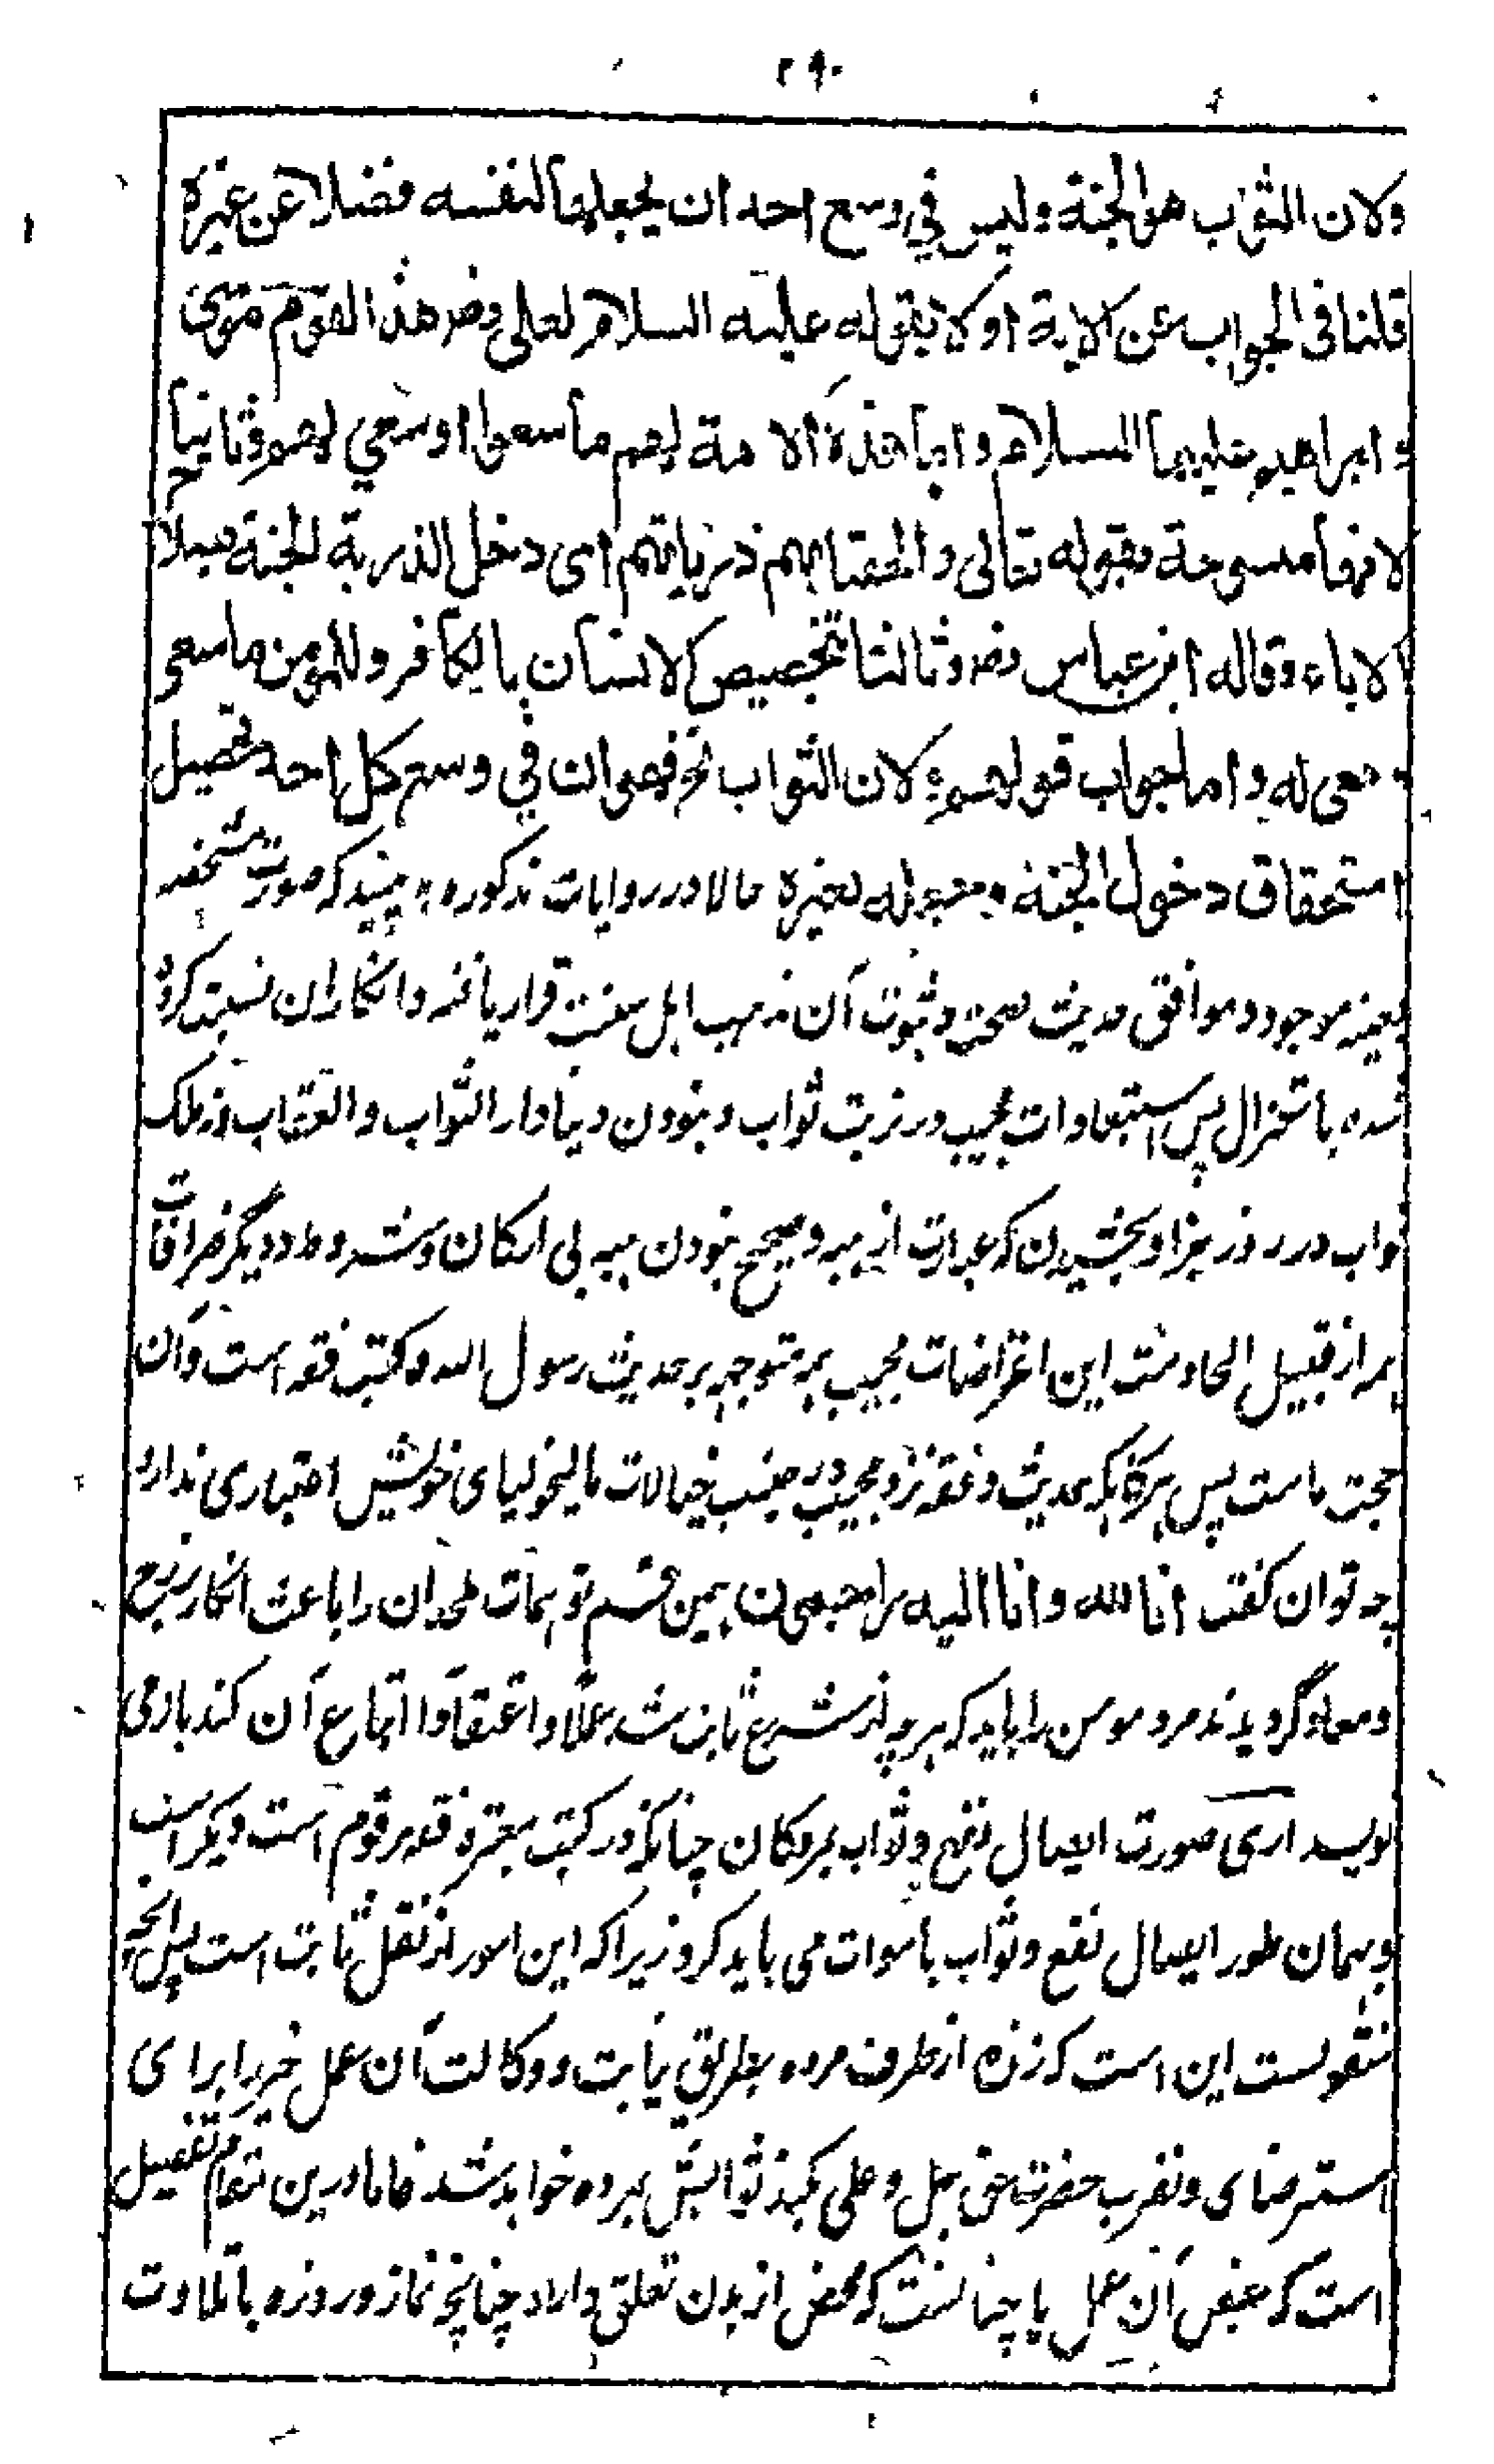 ٢٩٠
ولان الثواب هو الجنة وليس في وسع احد ان يجعلها لنفسه فضلا عن غيره
قلنا فى الجواب عن الاية اولا بقوله عليه السلام لعلى رضـ هذا القوم موسى
و ابراهيم عليهما السلام و اما هذه الامة لهم ما سعوا او سعي لهم وثانيا
لانها منسوخة بقوله تعالى والحقنا بهم ذرياتهم اى دخل الذرية الجنة بصلاح
الاباء وقاله ابن عباس رضـ وثالثا تخصيص الانسان بالكافر وللمؤمن ما سعى
و سعى له و اما جواب قولهم ولان الثواب نحو فهو ان في وسع كل احد تحصيل
استحقاق دخول الجنة و جعله لغيره حالا در روايات مذكوره ببينيد كه صورت مستحقه
بعينه موجود و موافق حديث صحت و ثبوت آن مذهب اهل سنت قرار يافته و انكار ان نسبت كرده
شده باعتزال پس استبعادات مجيب در ترتب ثواب و نبودن دنيا دار الثواب والعقاب و ملك
ثواب در روز جزا و بخشيدن كه عبارت از هبه و صحيح نبودن هبه بى امكان و شروط و ديگر خرافات
همه از قبيل الحاد ست اين اعتراضات مجيب همه متوجه بر حديث رسول الله و كتب فقه است و آن
حجت ماست پس هرگاه كه حديث و فقه نزد مجيب در جنب خيالات ماليخولياى خويش اعتبارى ندارد
چه توان گفت انا لله وانا اليه راجعون همين قسم توهمات ملحدان را باعث انكار برزخ
و معاد گرديد مرد مومن را بايد كه هرچه از شرع ثابت شد عملاً و اعتقاداً اتباع آن كند باز مى
نويسد ارى صورت ايصال نفع و ثواب بمردگان چنانكه در كتب معتبره فقه مرقوم است ديگر است
و بهمان طور ايصال نفع و ثواب باموات مى بايد كرد زيرا كه اين امور از نقل ثابت است پس انچه
منقولست اين است كه زنده از طرف مرده بطريق نيابت و وكالت آن عمل خير را براى
استرضاى و تقرب حضرت حق جل و على بكند ثوابش بمرده خواهد شد فاما درين مقام تفصيل
است كه بعض آن عمل يا چنانست كه محض از بدن تعلق دارد چنانچه نماز و روزه يا تلاوت